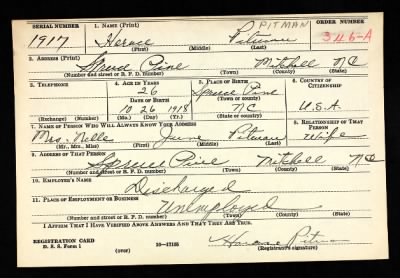 SERIAL NUMBER 1. NAME (Print) PITMAN ORDER NUMBER
1917 Horace Pitman 346-A
(First) (Middle) (Last)
2. ADDRESS (Print)
Spruce Pine Mitchell NC
(Number and street or R. F. D. number) (Town) (County) (State)
3. TELEPHONE 4. AGE IN YEARS 5. PLACE OF BIRTH 6. COUNTRY OF CITIZENSHIP
26 Spruce Pine
DATE OF BIRTH (Town or county)
10 26 1918 NC U.S.A.
(Exchange) (Number) (Mo.) (Day) (Yr.) (State or country)
7. NAME OF PERSON WHO WILL ALWAYS KNOW YOUR ADDRESS 8. RELATIONSHIP OF THAT PERSON
Mrs. Nelle June Pitman Wife
(Mr., Mrs., Miss) (First) (Middle) (Last)
9. ADDRESS OF THAT PERSON
Spruce Pine Mitchell NC
(Number and street or R. F. D. number) (Town) (County) (State)
10. EMPLOYER'S NAME
Discharged
11. PLACE OF EMPLOYMENT OR BUSINESS
Unemployed
(Number and street or R. F. D. number) (Town) (County) (State)
I AFFIRM THAT I HAVE VERIFIED ABOVE ANSWERS AND THAT THEY ARE TRUE.
Horace Pitman
REGISTRATION CARD
D. S. S. Form 1 (over) 16—17105 (Registrant's signature)